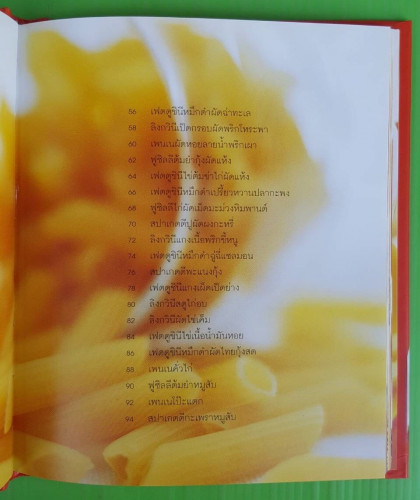 56 เฟตตูชินีหมึกดำผัดฉ่าทะเล
58 ลิงกวินีเป็ดกรอบผัดพริกโหระพา
60 เพนเนผัดหอยลายน้ำพริกเผา
62 ฟูซิลลีต้มยำกุ้งผัดแห้ง
64 เฟตตูชินีไข่ต้มข่าไก่ผัดแห้ง
66 เฟตตูชินีหมึกดำเปรี้ยวหวานปลากะพง
68 ฟูซิลลีไก่ผัดเม็ดมะม่วงหิมพานต์
70 สปาเกตตีปูผัดผงกะหรี่
72 ลิงกวินีแกงเนื้อพริกขี้หนู
74 เฟตตูชินีหมึกดำฉู่ฉี่แซลมอน
76 สปาเกตตีพะแนงกุ้ง
78 เฟตตูชินีแกงเผ็ดเป็ดย่าง
80 ลิงกวินีสตูไก่อบ
82 ลิงกวินีผัดไข่เค็ม
84 เฟตตูชินีไข่เนื้อน้ำมันหอย
86 เฟตตูชินีหมึกดำผัดไทยกุ้งสด
88 เพนเนคั่วไก่
90 ฟูซิลลีต้มยำหมูสับ
92 เพนเนโป๊ะแตก
94 สปาเกตตีกะเพราหมูสับ